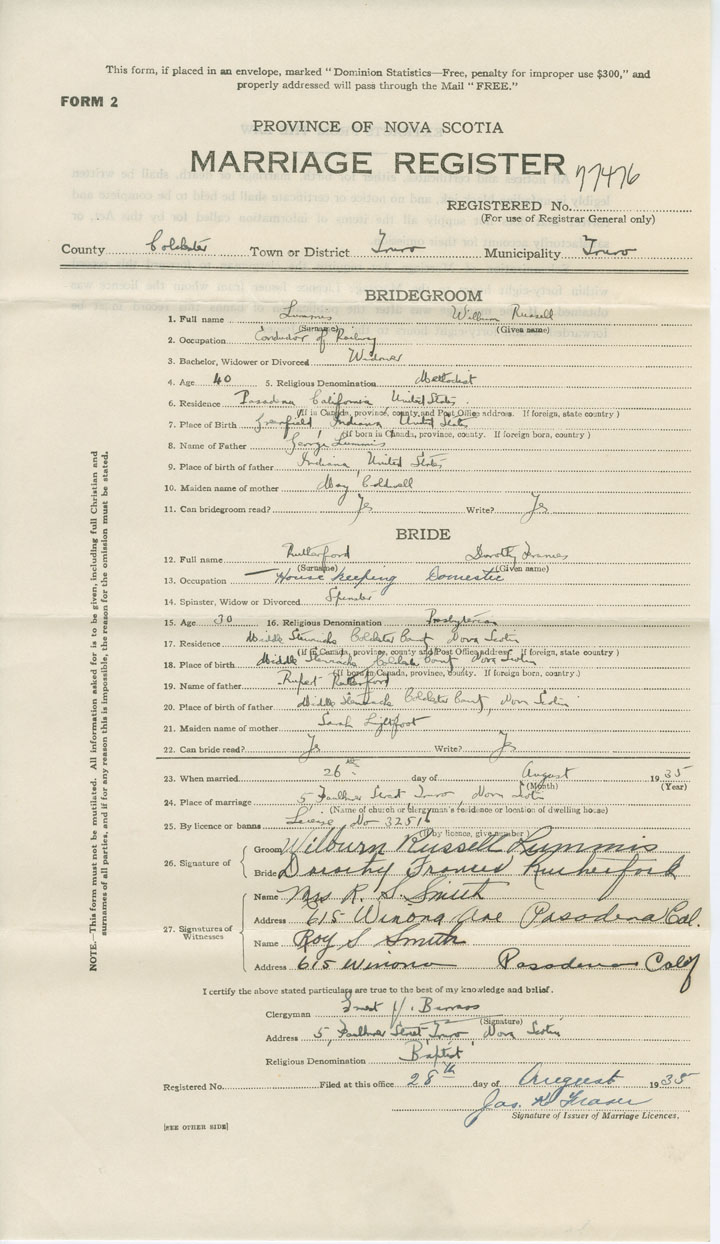 This form, if placed in an envelope, marked "Dominion Statistics—Free, penalty for improper use $300," and
properly addressed will pass through the Mail "FREE."
FORM 2
PROVINCE OF NOVA SCOTIA
MARRIAGE REGISTER 77476
REGISTERED No.
(For use of Registrar General only)
County Colchester Town or District Truro Municipality Truro
BRIDEGROOM
1. Full name Lummis William Russell
(Surname) (Given name)
2. Occupation Conductor of Railway
3. Bachelor, Widower or Divorced Widower
4. Age 40 5. Religious Denomination Methodist
6. Residence Pasadena California United States.
(If in Canada, province, county and Post Office address. If foreign, state country)
7. Place of Birth Greenfield Indiana United States
(If born in Canada, province, county. If foreign born, country)
8. Name of Father George Lummis
9. Place of birth of father Indiana, United States
10. Maiden name of mother May Caldwell
11. Can bridegroom read? Yes Write? Yes
BRIDE
12. Full name Rutherford Dorothy Frances
(Surname) (Given name)
13. Occupation — House keeping Domestic
14. Spinster, Widow or Divorced Spinster
15. Age 30 16. Religious Denomination Presbyterian
17. Residence Middle Stewiacke Colchester County Nova Scotia
(If in Canada, province, county and Post Office address. If foreign, state country)
18. Place of birth Middle Stewiacke Colchester County Nova Scotia
(If born in Canada, province, county. If foreign born, country.)
19. Name of father Rupert Rutherford
20. Place of birth of father Middle Stewiacke Colchester County, Nova Scotia
21. Maiden name of mother Sarah Lightfoot
22. Can bride read? Yes Write? Yes
23. When married 26th day of August 1935
(Month) (Year)
24. Place of marriage 5 Faulkner Street Truro, Nova Scotia
(Name of church or clergyman's residence or location of dwelling house)
25. By licence or banns License No 32516
(If by licence, give number)
26. Signature of
Groom Wilburn Russell Lummis
Bride Dorothy Frances Rutherford
27. Signatures of Witnesses
Name Mrs R. S. Smith
Address 615 Winona Ave Pasadena Cal.
Name Roy S Smith
Address 615 Winona Pasadena Calif
I certify the above stated particulars are true to the best of my knowledge and belief.
Clergyman
(Signature)
Address 5, Faulkner Street, Truro, Nova Scotia
Religious Denomination Baptist
Registered No. Filed at this office 28th day of August 1935
Jas. Fraser
Signature of Issuer of Marriage Licences.
[SEE OTHER SIDE]
NOTE.—This form must not be mutilated. All information asked for is to be given, including full Christian and
surnames of all parties, and if for any reason this is impossible, the reason for the omission must be stated.